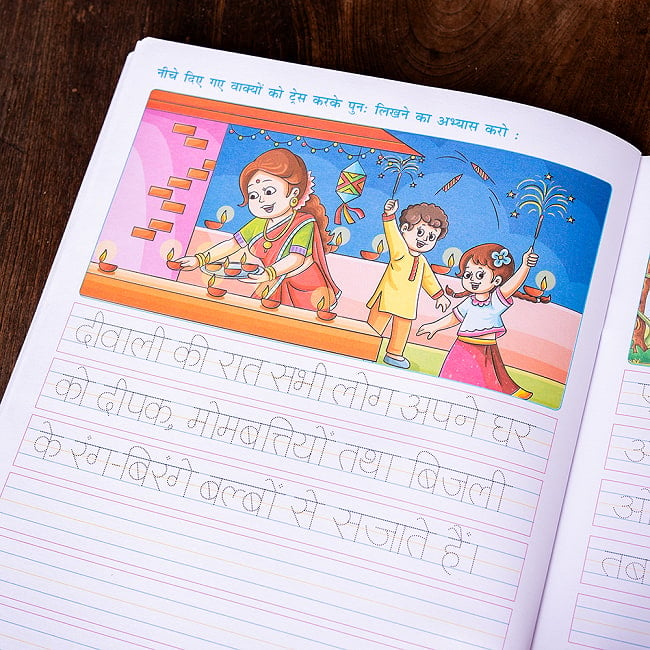 नीचे दिए गए वाक्यों को ट्रेस करके पुनः लिखने का अभ्यास करो :
दीवाली की रात सभी लोग अपने घर
को दीपक, मोमबत्तियों तथा बिजली
के रंग-बिरंगे बल्बों से सजाते हैं।
तब